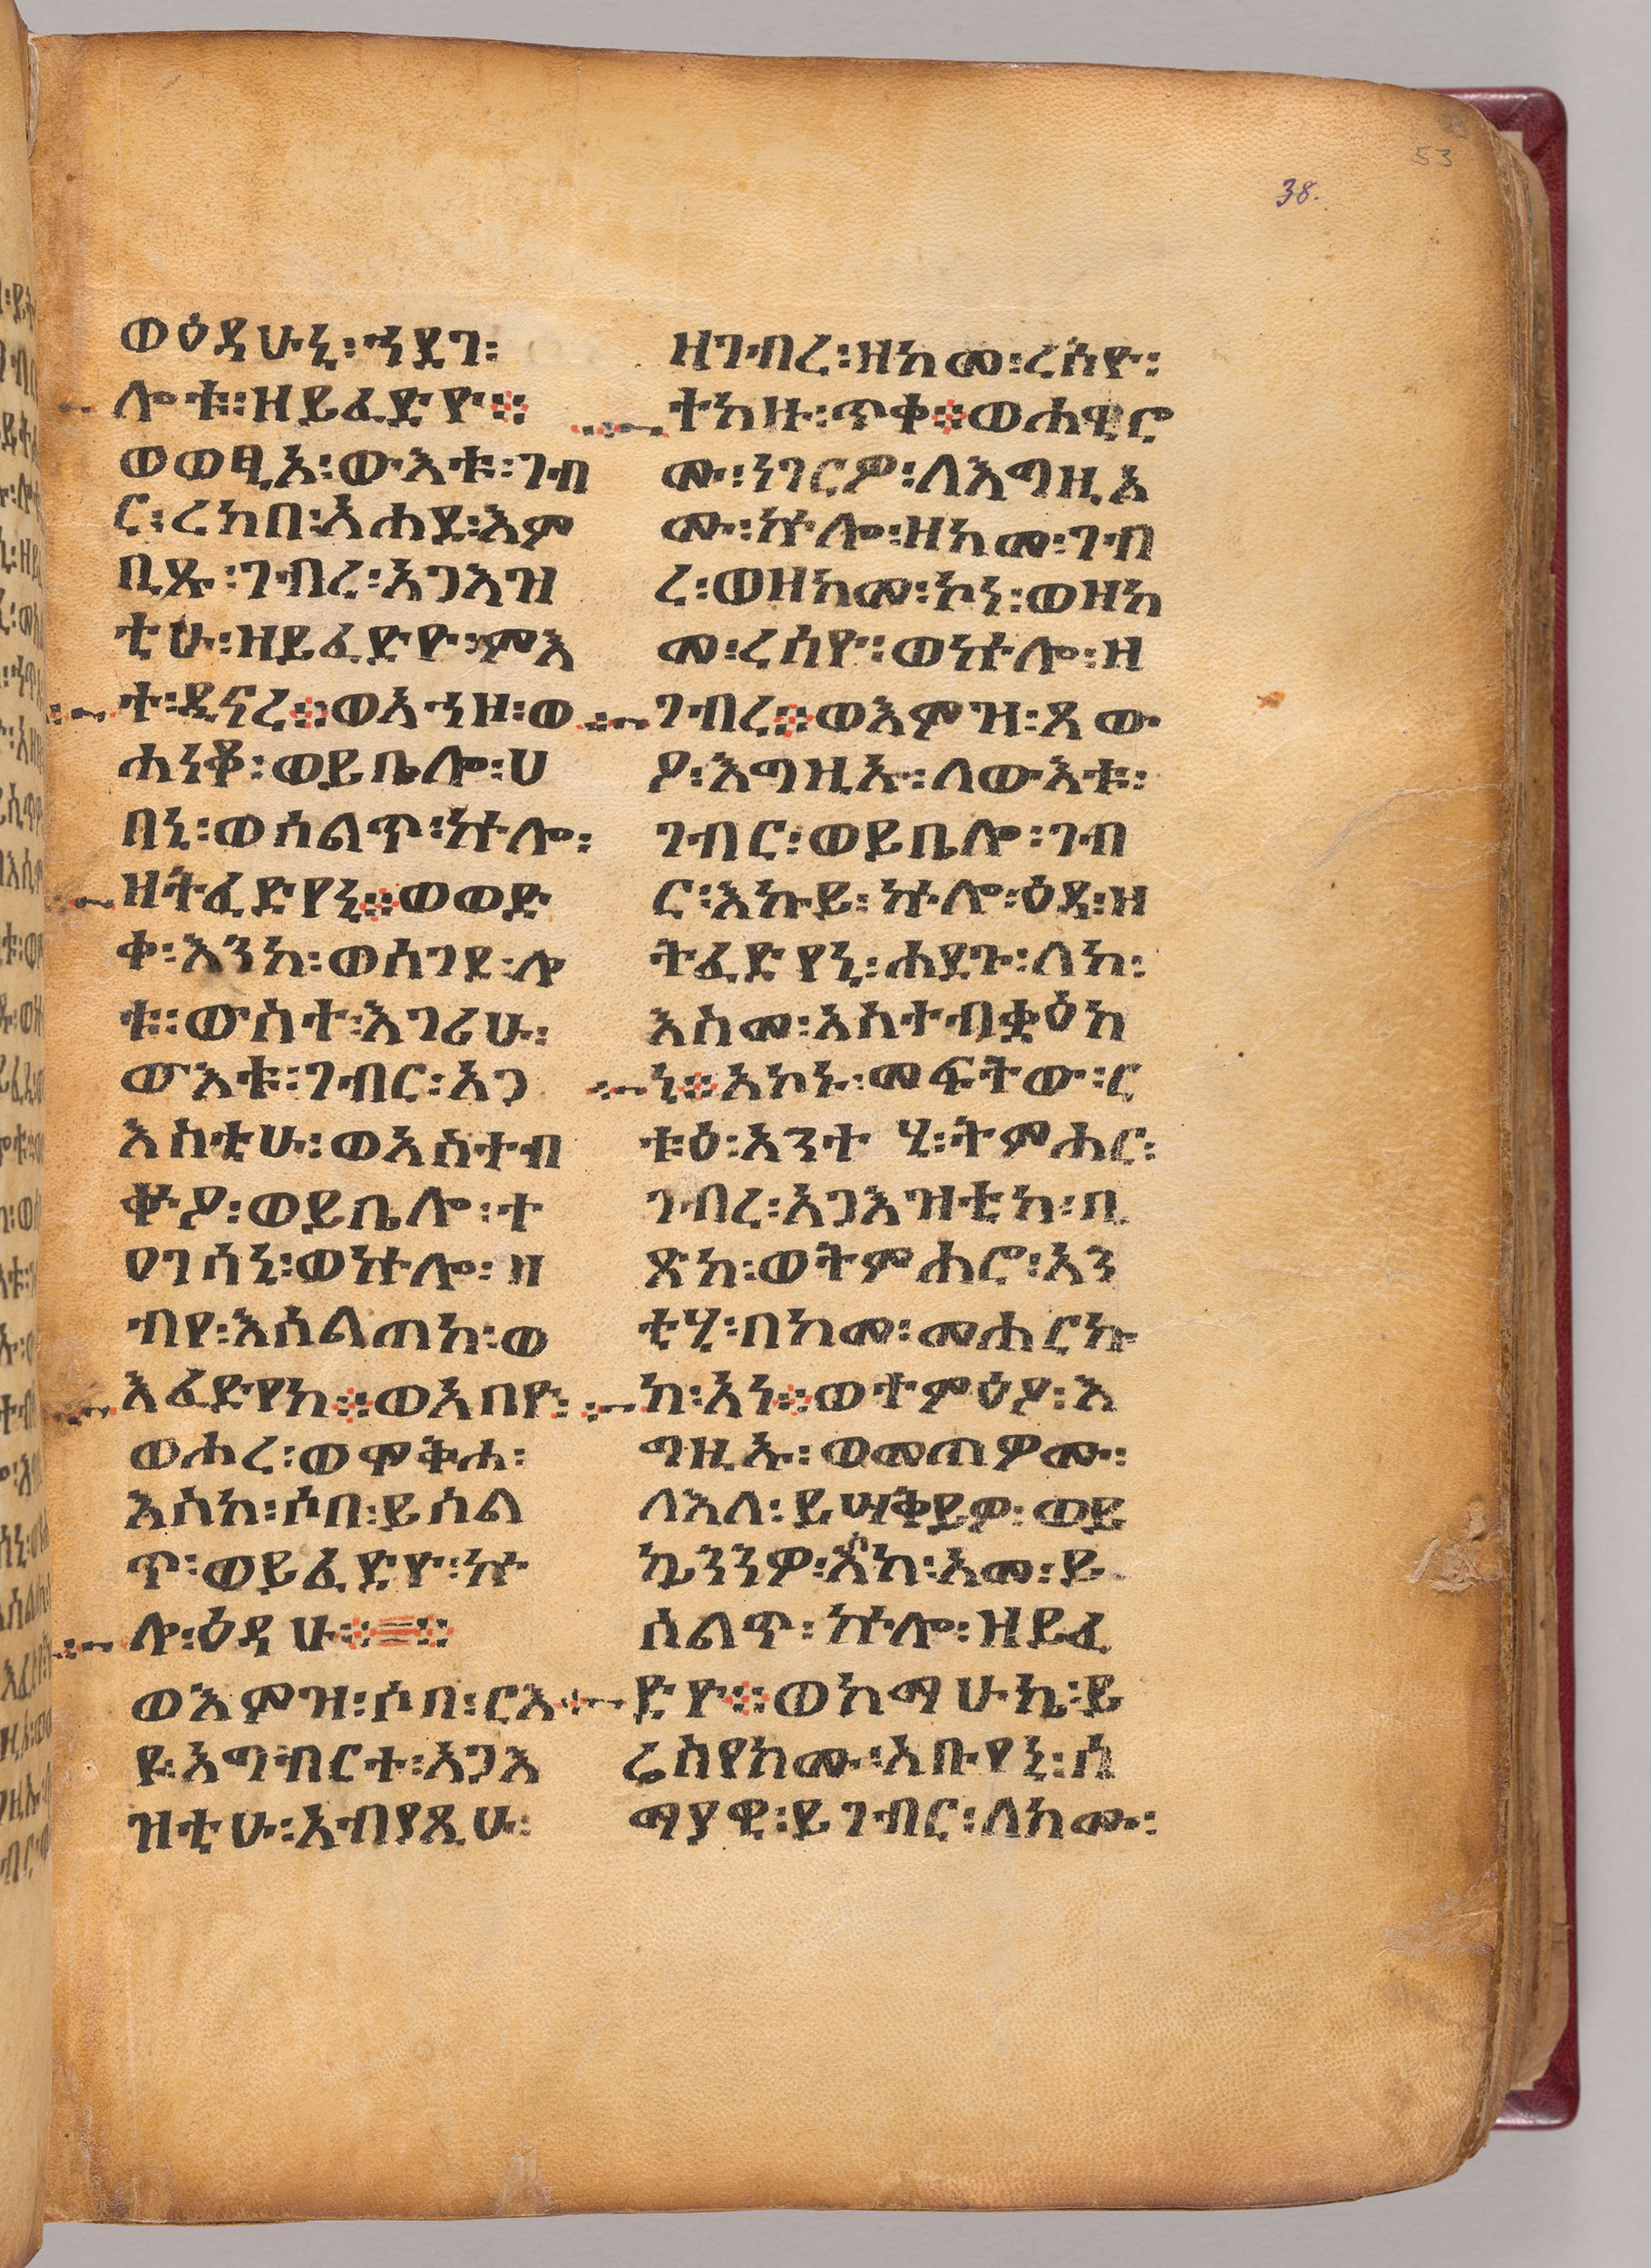 53
38.
ወዕዳሁኒ፡ኀደገ፡
ሎቱ፡ዘይፈድዮ፨
ወወፂአ፡ውእቱ፡ገብ
ር፡ረከበ፡አሐደ፡እም
ቢጹ፡ገብረ፡አጋእዝ
ቲሁ፡ዘይፈድዮ፡ምእ
ተ፡ዲናረ፨ወአኀዘ፡ወ
ሐነቆ፡ወይቤሎ፡ሀ
በኒ፡ወሰልጥ፡ኵሎ፡
ዘትፈድየኒ፨ወወድ
ቀ፡እንከ፡ወሰገደ፡ሎ
ቱ፡ውስተ፡እገሪሁ፡
ውእቱ፡ገብር፡አጋ
እስቲሁ፡ወአስተብ
ቍዖ፡ወይቤሎ፡ተ
ዐገሰኒ፡ወኵሎ፡ዘ
ብየ፡እሰልጠከ፡ወ
እፈድየከ፨ወአበየ፡
ወሐረ፡ወሞቅሐ፡
እስከ፡ሶበ፡ይሰል
ጥ፡ወይፈድዮ፡ኵ
ሎ፡ዕዳሁ፨፨
ወእምዝ፡ሶበ፡ርእ
ዩ፡አግብርተ፡አጋእ
ዝቲሁ፡አብያጺሁ፡
ዘገብረ፡ዘከመ፡ረሰዮ፡
ተከዙ፡ጥቀ፨ወሐዊሮ
ሙ፡ነገርዎ፡ለእግዚአ
ሙ፡ኵሎ፡ዘከመ፡ገብ
ረ፡ወዘከመ፡ኮነ፡ወዘከ
መ፡ረሰዮ፡ወኵሎ፡ዘ
ገብረ፨ወእምዝ፡ጸው
ዖ፡እግዚኡ፡ለውእቱ፡
ገብር፡ወይቤሎ፡ገብ
ር፡እኩይ፡ኵሎ፡ዕዳ፡ዘ
ትፈድየኒ፡ሐደጉ፡ለከ፡
እስመ፡አስተብቋዕከ
ኒ፨አኮኑ፡መፍትው፡ር
ቱዕ፡አንተ ሂ፡ትምሐር፡
ገብረ፡አጋእዝቲከ፡ቢ
ጽከ፡ወትምሐሮ፡አን
ቲሂ፡በከመ፡መሐርኩ
ከ፡አነ፨ወተምዕዖ፡እ
ግዚኡ፡ወመጠዎሙ፡
ለእለ፡ይሣቅይዎ፡ወይ
ኴንንዎ፡እስከ፡አመ፡ይ
ሰልጥ፡ኵሎ፡ዘይፈ
ድዮ፨ወከማሁኬ፡ይ
ሬስየከሙ፡አቡየኒ፡ሰ
ማያዊ፡ይገብር፡ለከሙ፡